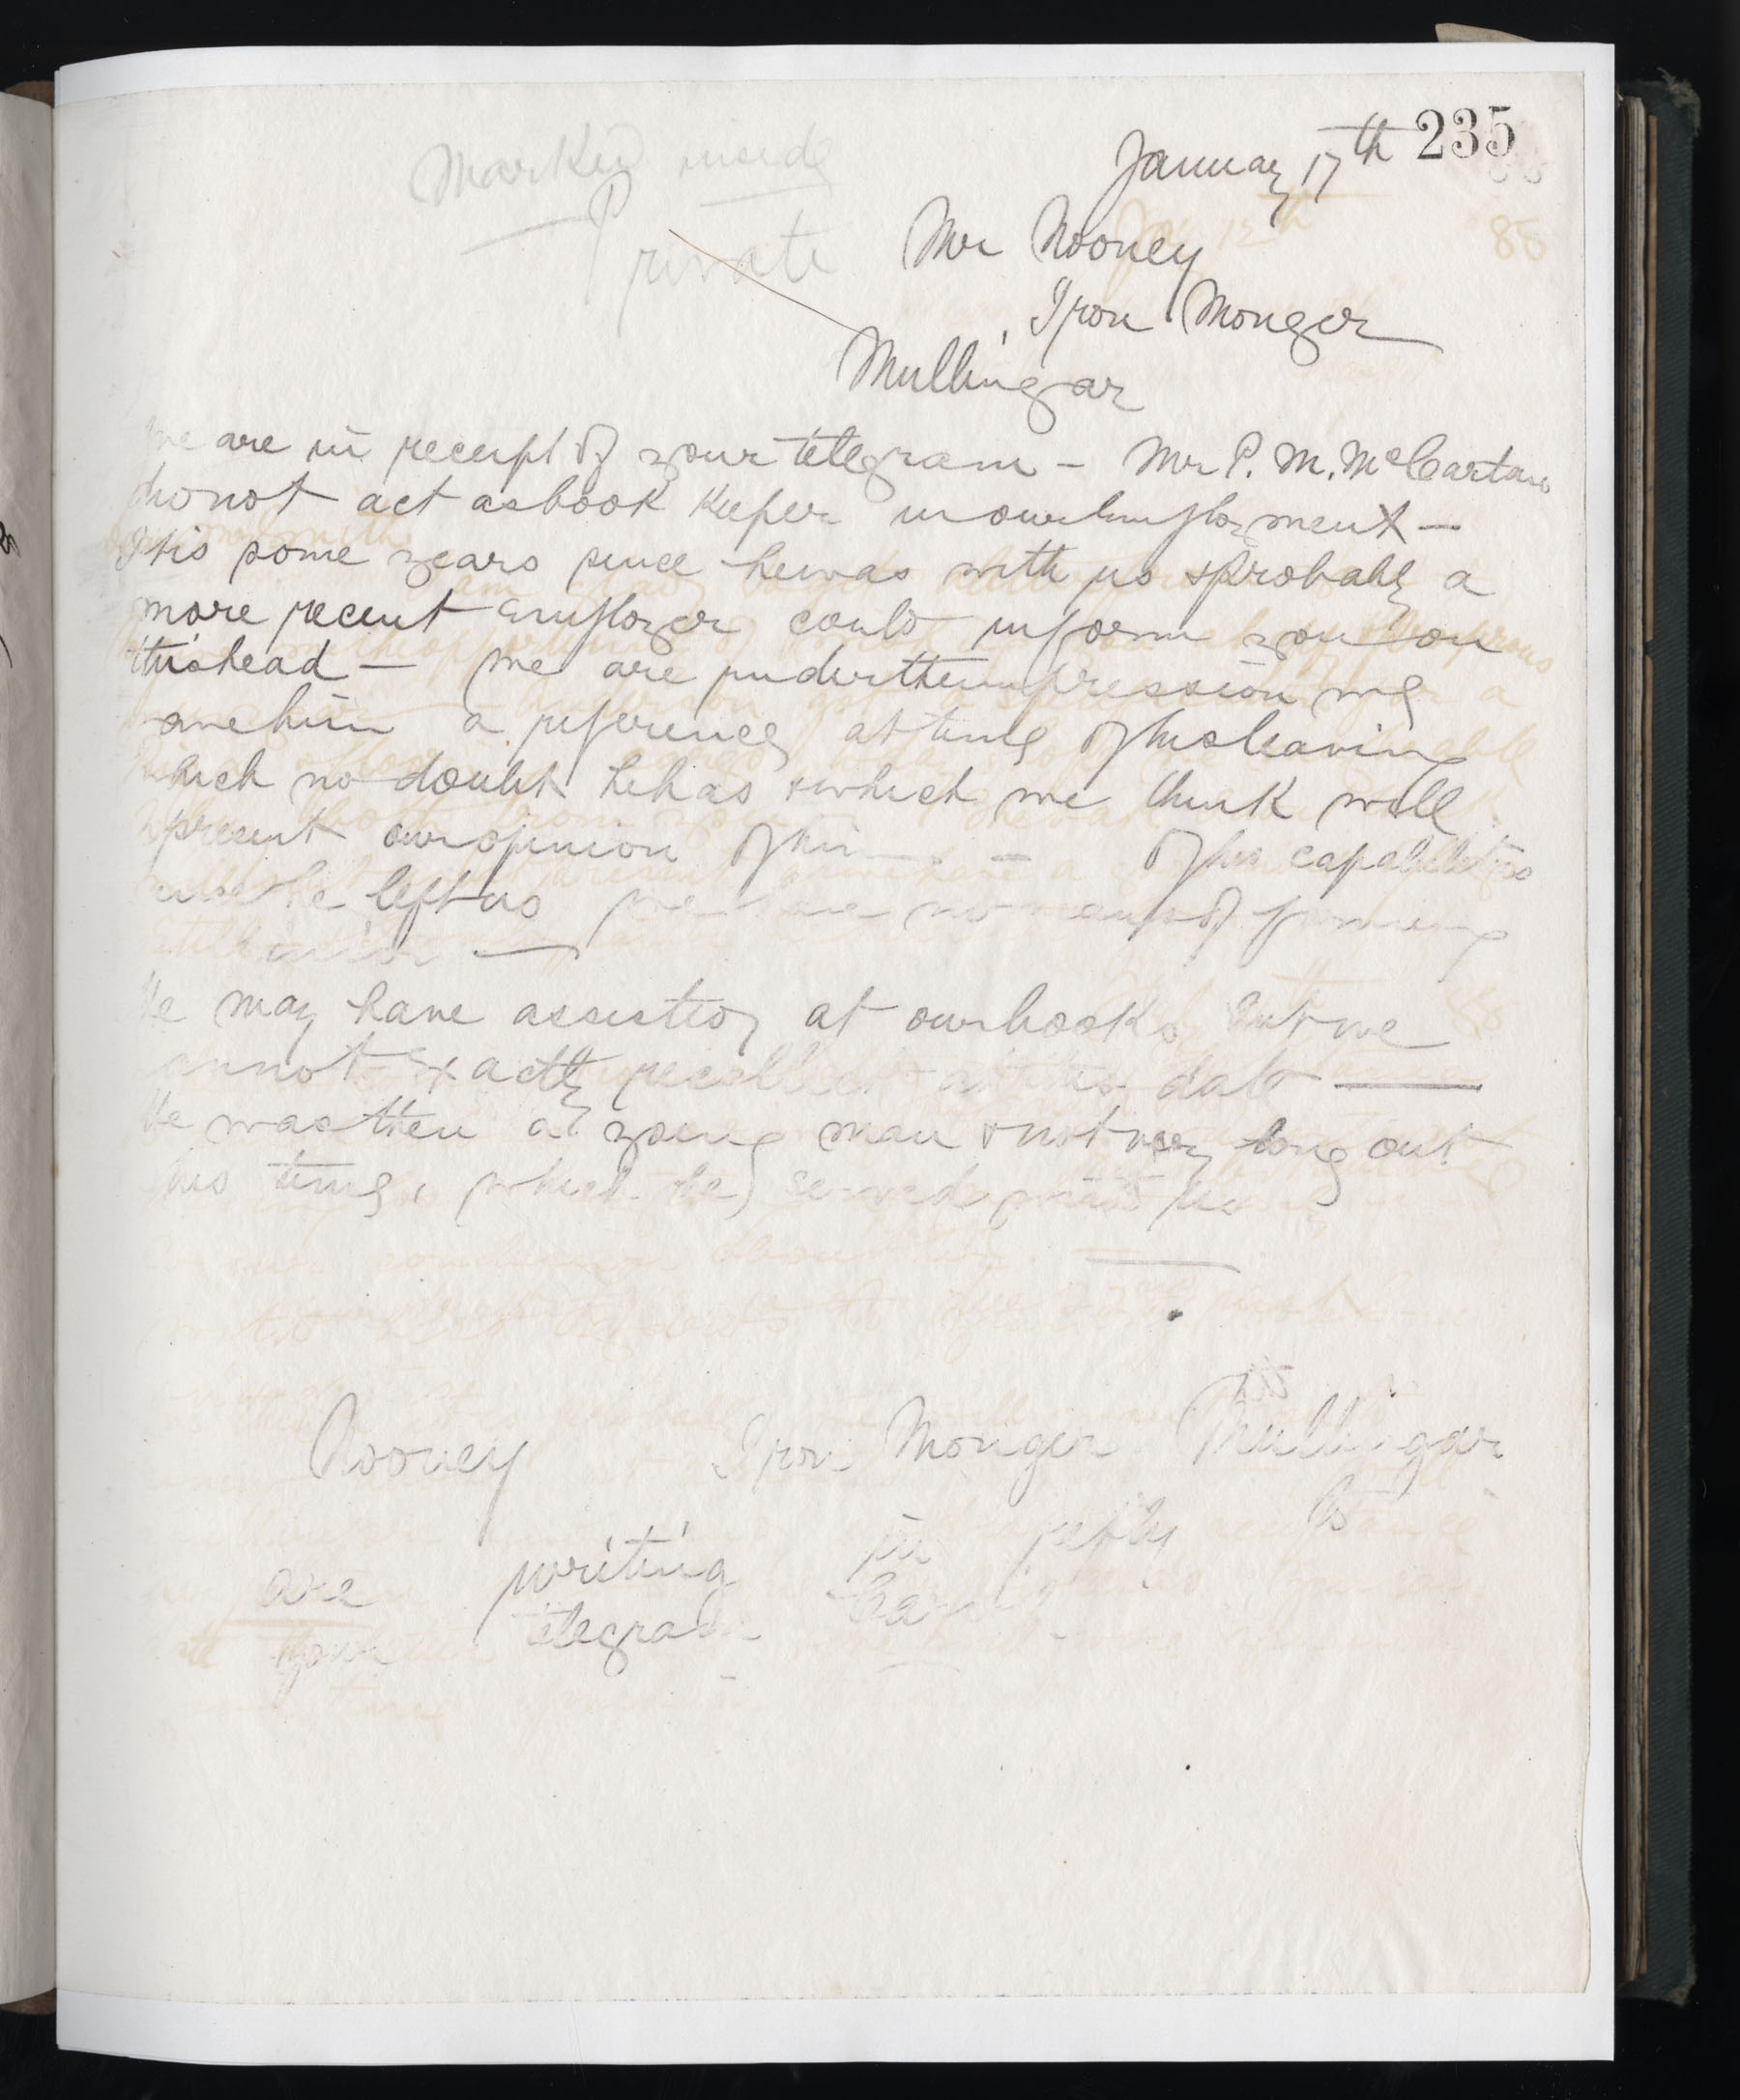 235
January 17th
Marked inside
Private
Mr Rooney
Iron Monger
Mullingar
We are in receipt of your telegram - Mr P. M. McCartan
did not act as book keeper in our employment -
It is some years since he was with us & probably a
more recent employer could inform you on
this head - We are under the impression we
gave him a reference at time of his leaving
which no doubt he has & which we think will
present our opinion of him - of his capabilities
since he left us we have no means of forming
He may have assisted at our books but we
cannot exactly recollect at this date
He was then a young man & not very long out
his time, which he served with us
Rooney Iron Monger Mullingar
are writing in reply to
your telegram